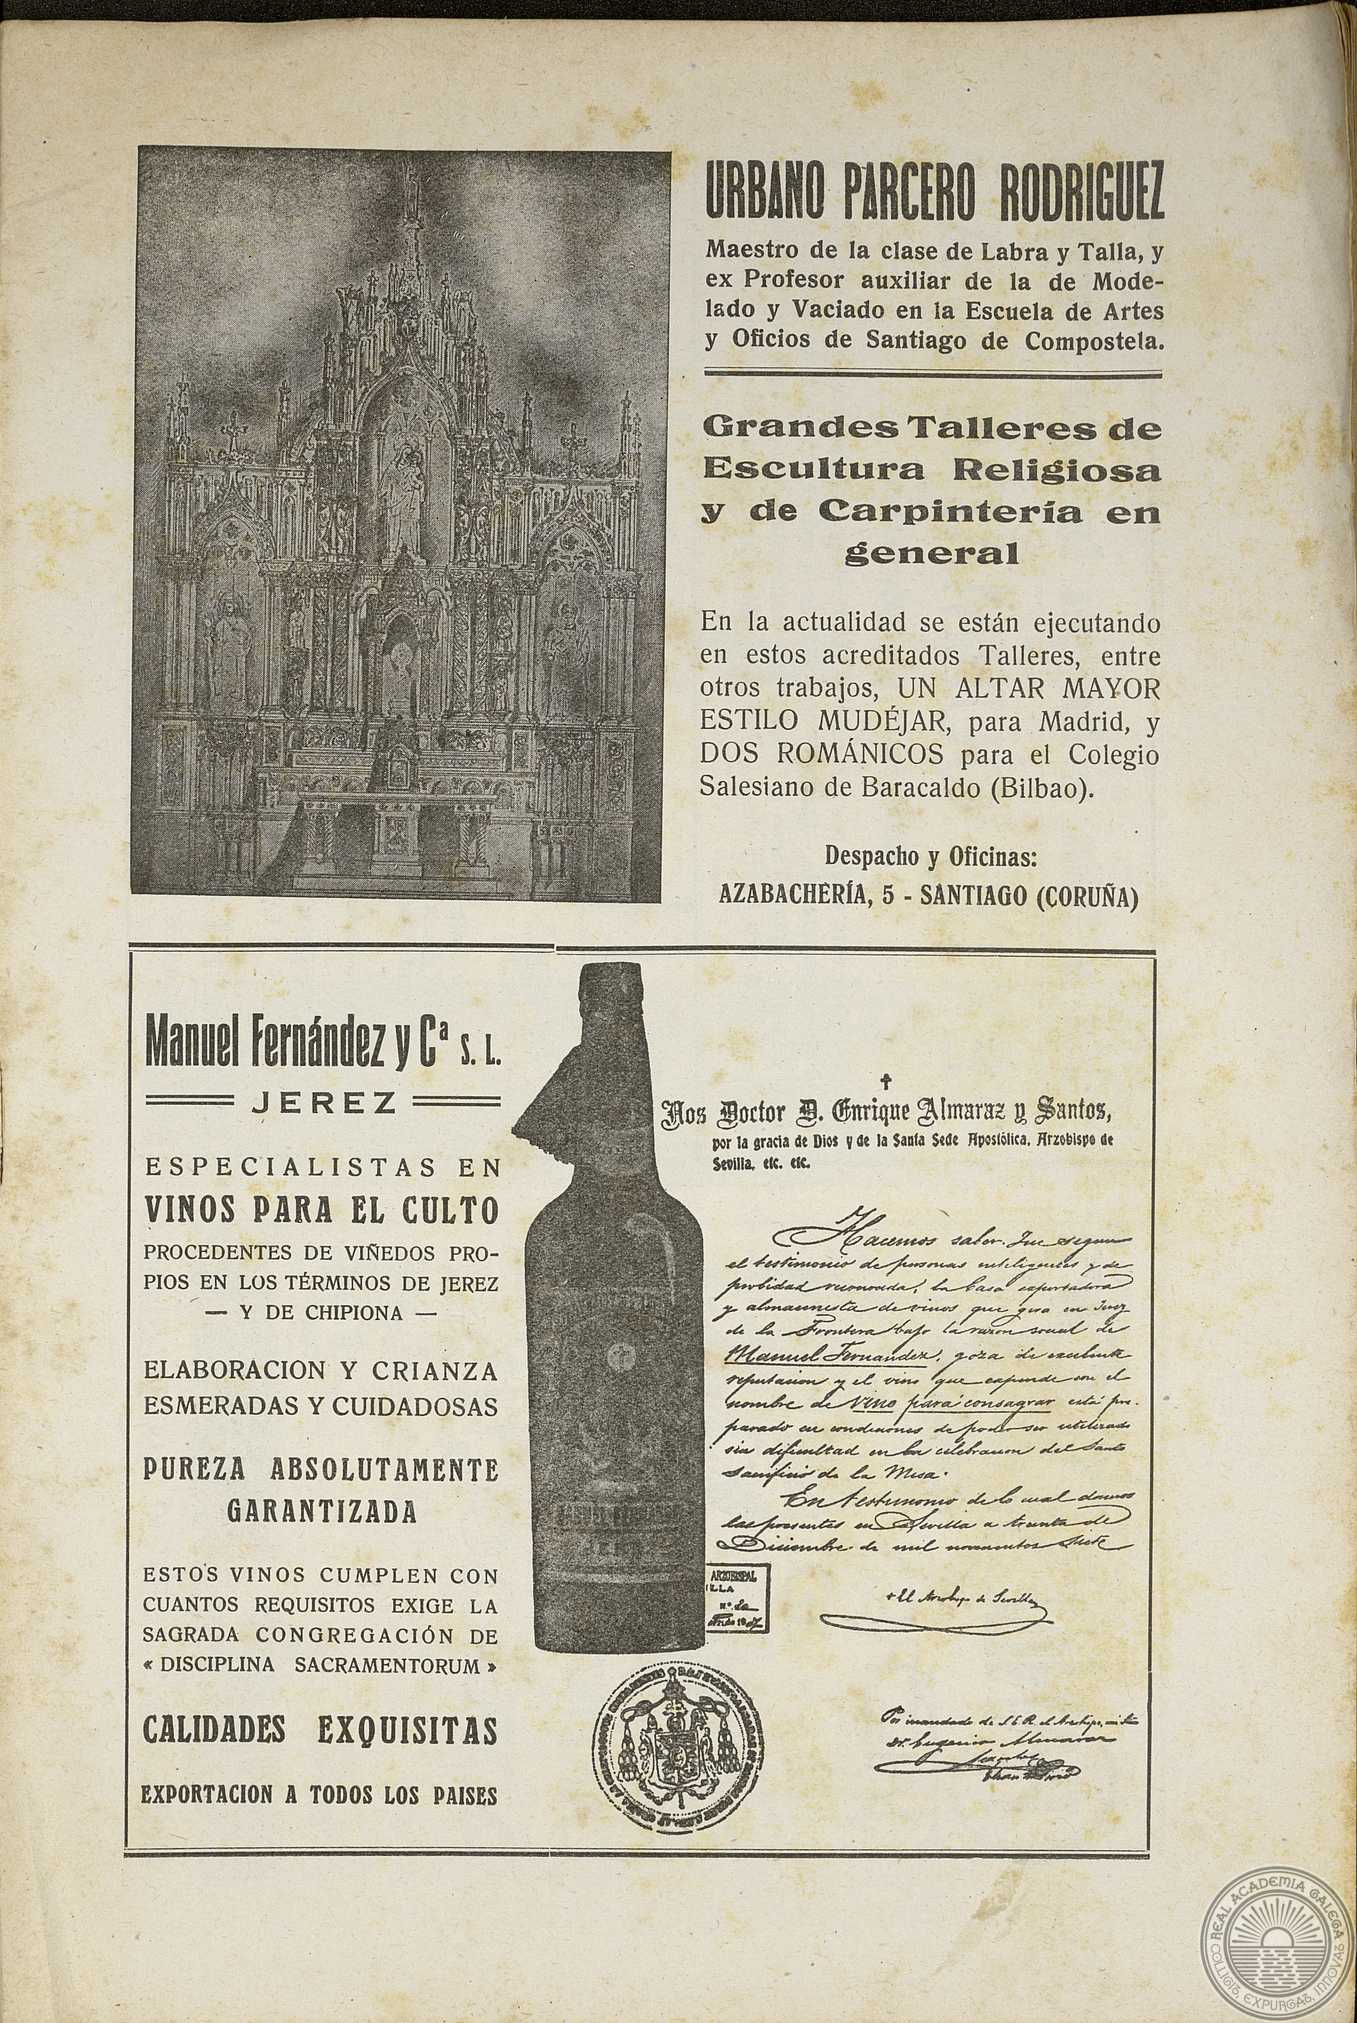 URBANO PARCERO RODRIGUEZ
Maestro de la clase de Labra y Talla, y
ex Profesor auxiliar de la de Mode-
lado y Vaciado en la Escuela de Artes
y Oficios de Santiago de Compostela.
Grandes Talleres de
Escultura Religiosa
y de Carpintería en
general
En la actualidad se están ejecutando
en estos acreditados Talleres, entre
otros trabajos, UN ALTAR MAYOR
ESTILO MUDÉJAR, para Madrid, y
DOS ROMÁNICOS para el Colegio
Salesiano de Baracaldo (Bilbao).
Despacho y Oficinas:
AZABACHERÍA, 5 - SANTIAGO (CORUÑA)
Manuel Fernández y Cª S. L.
JEREZ
ESPECIALISTAS EN
VINOS PARA EL CULTO
PROCEDENTES DE VIÑEDOS PRO-
PIOS EN LOS TÉRMINOS DE JEREZ
— Y DE CHIPIONA —
ELABORACION Y CRIANZA
ESMERADAS Y CUIDADOSAS
PUREZA ABSOLUTAMENTE
GARANTIZADA
ESTOS VINOS CUMPLEN CON
CUANTOS REQUISITOS EXIGE LA
SAGRADA CONGREGACIÓN DE
« DISCIPLINA SACRAMENTORUM »
CALIDADES EXQUISITAS
EXPORTACION A TODOS LOS PAISES
Nos Doctor D. Enrique Almaraz y Santos,
por la gracia de Dios y de la Santa Sede Apostólica, Arzobispo de
Sevilla, etc. etc.
Hacemos saber: Que segun
el testimonio de personas inteligentes y de
probidad reconocida, la Casa exportadora
y almacenista de vinos que gira en Jerez
de la Frontera bajo la razon social de
Manuel Fernandez, goza de excelente
reputacion y el vino que expende con el
nombre de vino para consagrar está pre-
parado en condiciones de poder ser utilizado
sin dificultad en la celebracion del Santo
Sacrificio de la Misa.
En testimonio de lo cual damos
las presentes en Sevilla a treinta de
Diciembre de mil novecientos siete
ARZOBISPAL
ILLA
Nº
+ El Arzobpo de Sevilla
Por mandado de S.E.R. el Arzbpo, mi Sr.
Dr. Eugenio Almaraz
REAL ACADEMIA GALEGA
COLLIGIT, EXPURGAT, INNOVAT